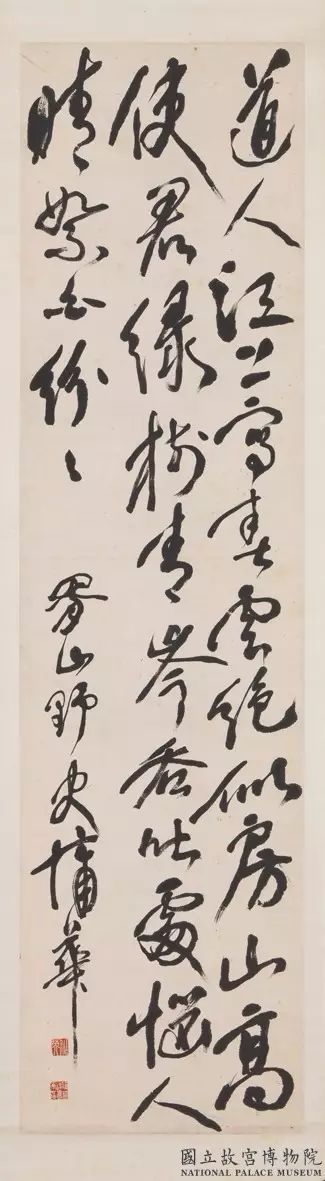 道人江上寫春雲絕似房山高
使君綠樹青岑吞吐處惱人
晴絮白紛〻
胥山野史蒲華
國立故宮博物院
NATIONAL PALACE MUSEUM